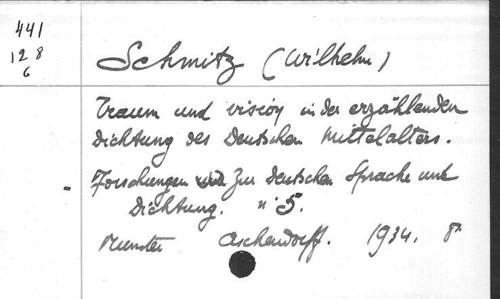 441
128
6
Schmitz (Wilhelm)
Traum und vision in der erzählenden
Dichtung des Deutschen Mittelalters.
- Forschungen zur Deutschen Sprache und
Dichtung. n° 5.
Munster Aschendorff. 1934. 8°